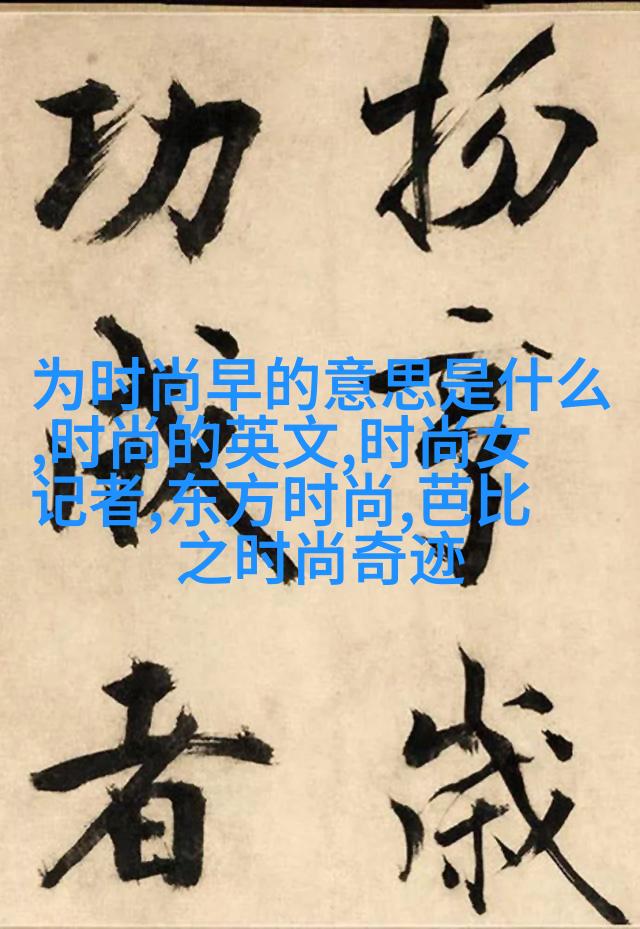 物亨歲
功成者
为时尚早的意思是什么
,时尚的英文,时尚女
记者,东方时尚,芭比
之时尚奇迹